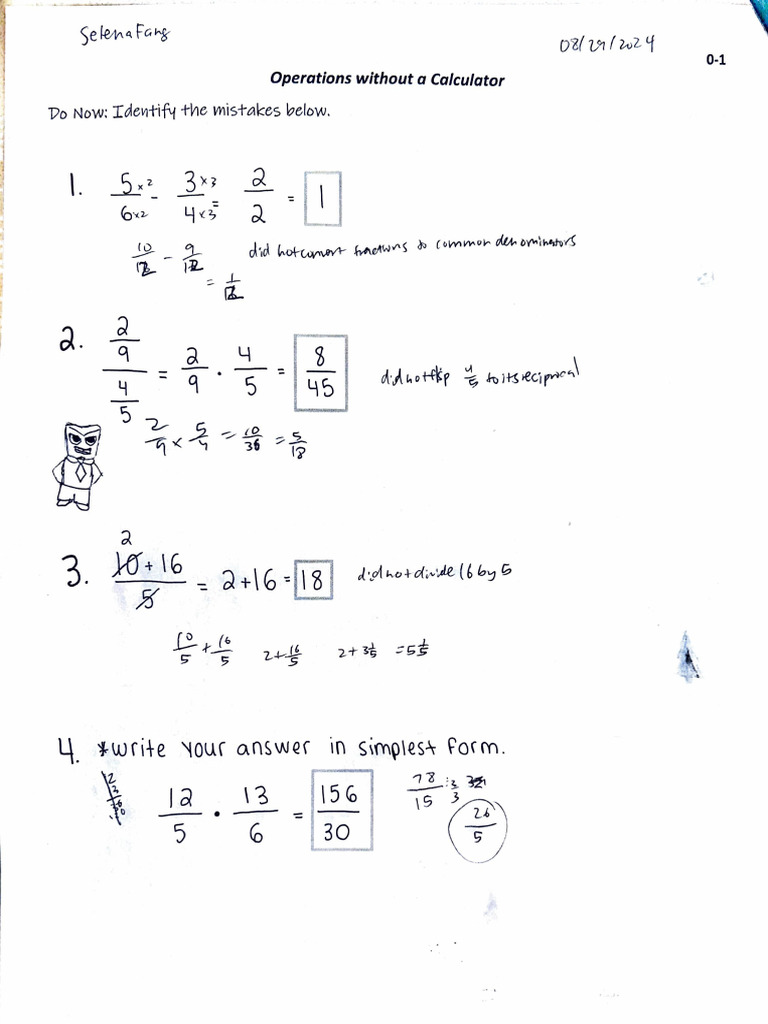 Selena Fang
08/29/2024
0-1
Operations without a Calculator
Do Now: Identify the mistakes below.
1. 5/6 ×2/×2 - 3/4 ×3/×3 = 2/2 = 1
10/12 - 9/12 did not convert fractions to common denominators
= 1/12
2. (2/9)/(4/5) = 2/9 · 4/5 = 8/45 did not flip 4/5 to its reciprocal
2/9 × 5/4 = 10/36 = 5/18
2
3. (10+16)/5 = 2+16 = 18 did not divide 16 by 5
10/5 + 16/5 2+16/5 2+3 1/5 = 5 1/5
4. *Write your answer in simplest form.
12/5 · 13/6 = 156/30 78/15 ÷3/3
26/5